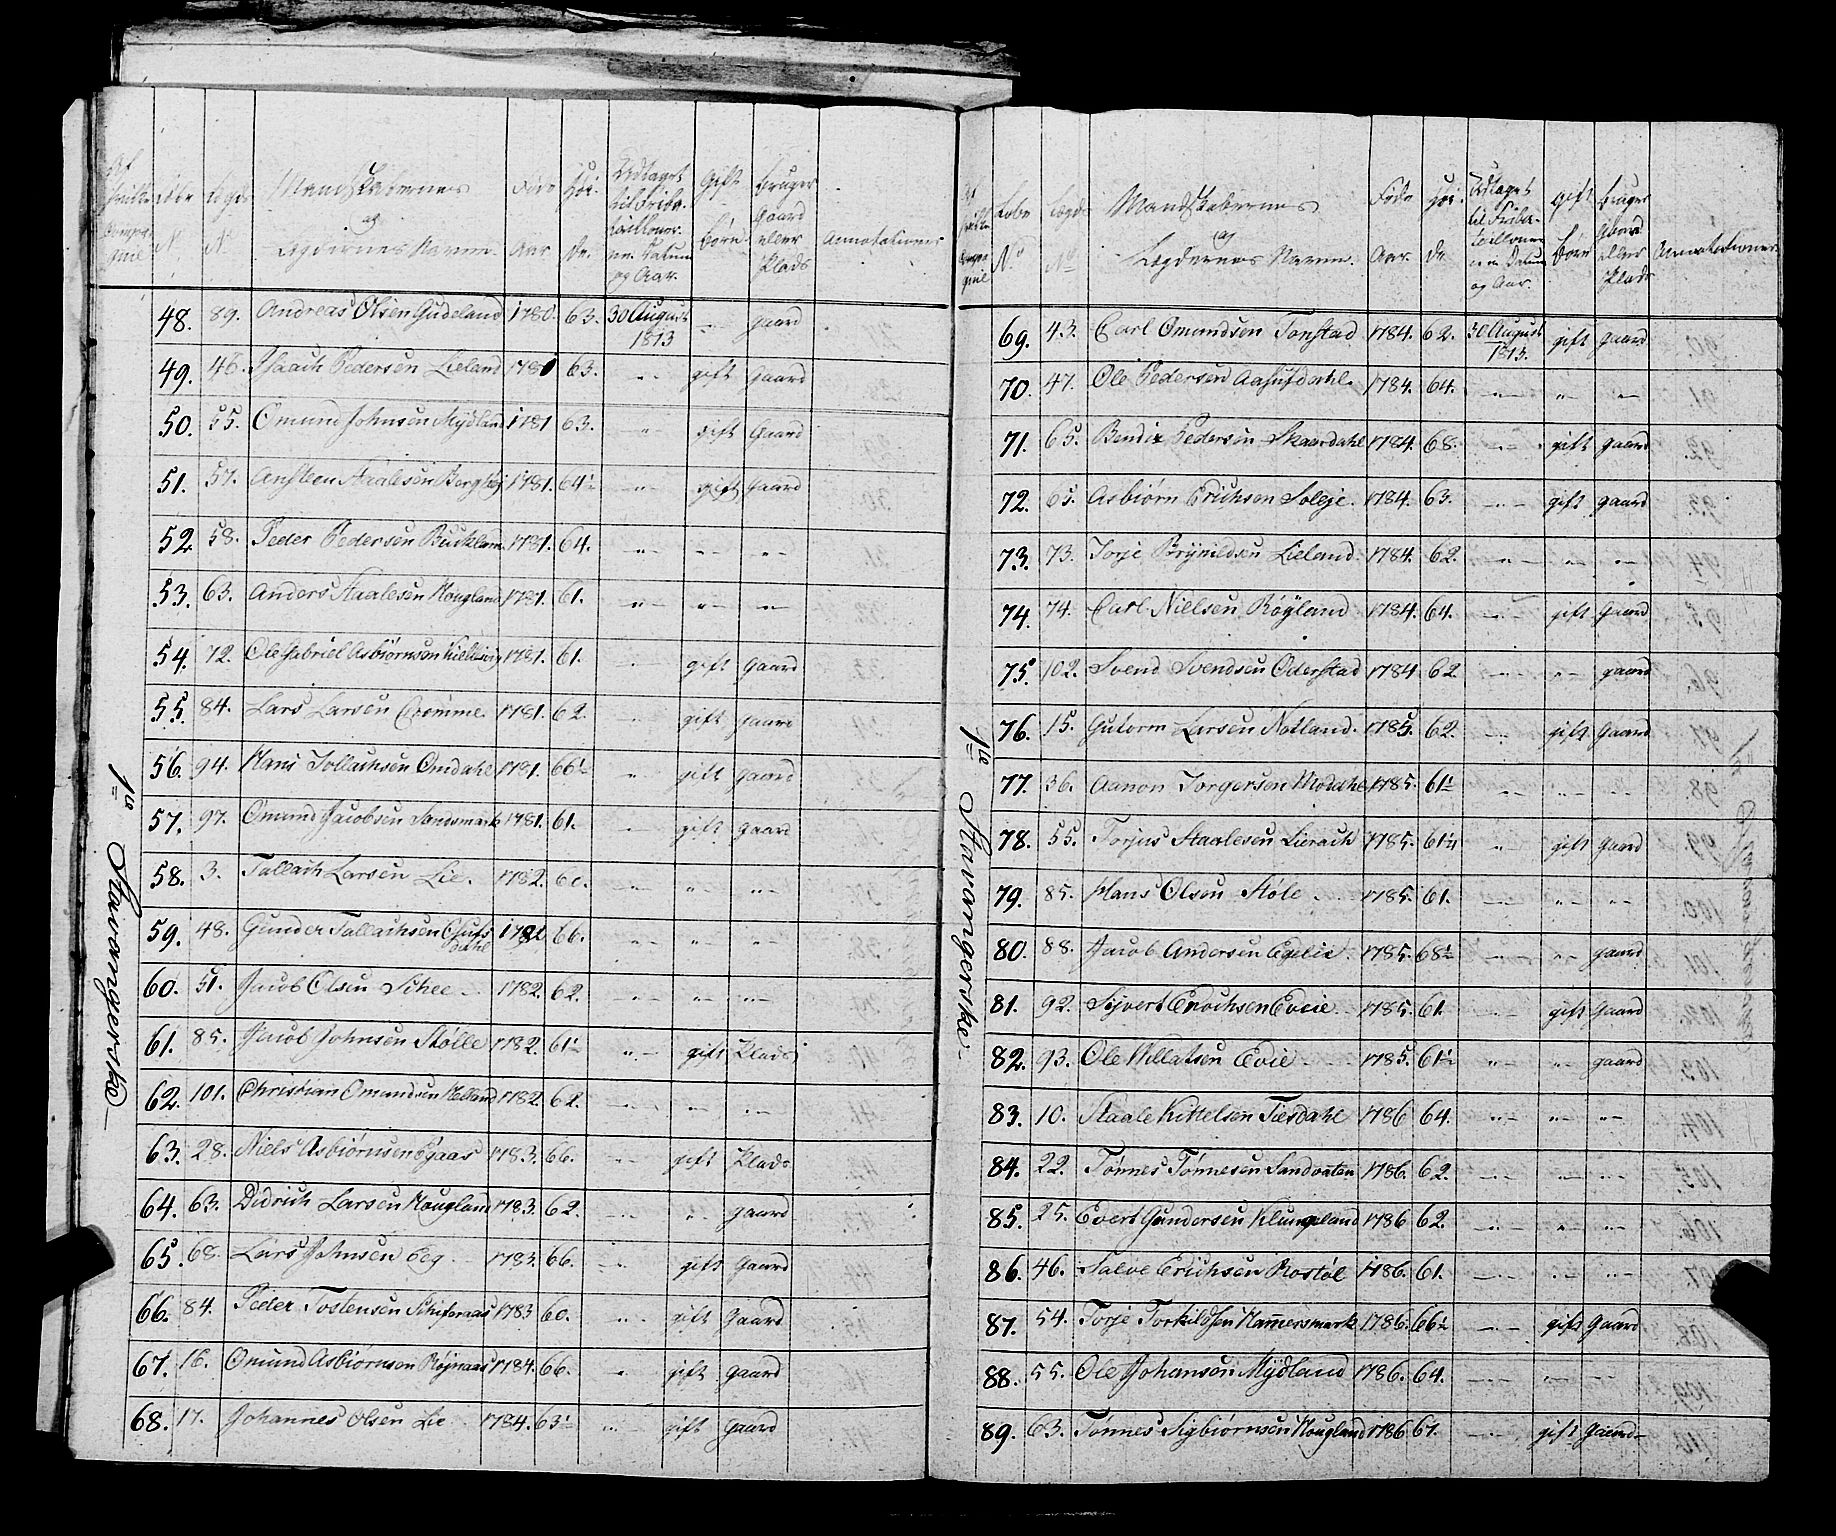 Løbe No Lægds No Mandskabernes og Lægdernes Navne. Føde Aar Høi- de. Udtaget til Friba- tailloner- ne. Datum og Aar. Gift Børn Bruger Gaard eller Plads Annotationer
48. 89. Andreas Olsen Gudeland 1780. 63. 30 August 1813 " gaard
49. 46. Isaach Pedersen Lieland 1781 63. " gift gaard
50. 55. Omund Johnsen Mydland 1781 63. " gift Gaard
51. 57. Ansteen Staalesen 1781. 64½ " gift Gaard
52. 58. Peder Pedersen 1781. 64. " " "
53. 63. Anders Staalesen Hougland 1781. 61. " " "
54. 72. Ole Gabriel Asbiørnsen 1781. 61. " gift Gaard
55. 84. Lars Larsen Egømme. 1781. 62. " gift gaard
56. 94. Hans Tollachsen Omdahl 1781. 66½ " gift gaard
57. 97. Omund Jacobsen Sandsmark 1781. 61. " gift Gaard
58. 3. Tallach Larsen Lie. 1782. 61. " " "
59. 48. Gunder Tallachsen dahl 1782 66. " " "
60. 51. Jacob Olsen Schee 1782. 62. " " "
61. 85. Jacob Johnsen Stølle 1782. 61½ " gift Plads
62. 101. Christian Omundsen Helland 1782. 62. " " "
63. 28. Niels Asbiørnsen Egaas 1783. 66. " gift Plads
64. 63. Didrich Larsen Hougland 1783. 62. " " gaard
65. 68. Lars Johnsen Eeg 1783. 66. " gift Gaard
66. 84. Peder Tostensen 1783 60. " gift Gaard
67. 16. Omund Asbiørnsen Røjnaas 1784. 66. " gift gaard
68. 17. Johannes Olsen Lie 1784. 63½ " gift Gaard
1te Stavangerske
Løbe No Lægds No Mandskabernes og Lægdernes Navne. Føde Aar. Høi- de Udtaget til Friba- taillone- ne. Datum og Aar. gift Børn Bruger Gaard eller Plads Annotationer
69. 43. Carl Omundsen Tonstad 1784. 62. 30 August 1813. gift gaard
70. 47. Ole Pedersen 1784. 64. " " "
71. 65. Bendix Pedersen Skaardahl 1784. 68. " gift gaard
72. 65. Asbiørn Erichsen Soleje. 1784. 63. " gift gaard
73. 73. Torje Brynildsen Lieland. 1784. 62. " " "
74. 74. Carl Nielsen Røyland. 1784. 64. " gift Gaard
75. 102. Svend Svendsen Oderstad 1784 62 " " gaard
76. 15. Gutorm Larsen Notland. 1785. 62. " gift Gaard
77. 36. Aanon Torgersen Moldahl 1785. 61½ " " "
78. 55. Torjus Staalesen Lierach 1785. 61¼ " gift Gaard
79. 85. Hans Olsen Støle 1785. 61. " " "
80. 88. Jacob Andersen Egelie. 1785. 68½ " " gaard
81. 92. Sijvert Enochsen Eveie 1785. 61. " gift Gaard
82. 93. Ole Villatsen Evie 1785. 61½ " " gaard
83. 10. Staale Kittelsen Tiesdahl 1786 64. " " "
84. 22. Tønnes Tønnesen Sandvaten 1786. 62. " " "
85. 25. Evert Gundersen Klungeland 1786 62. " " "
86. 46. Salve Erichsen Rostøl 1786. 61. " " "
87. 54. Torje Torkildsen Hamersmark 1786. 66½ " gift Gaard
88. 55. Ole Johansen Mydland 1786. 64. " " "
89. 63. Tønnes Sigbiørnsen Hougland 1786 61. " gift Gaard
1te Stavangerske